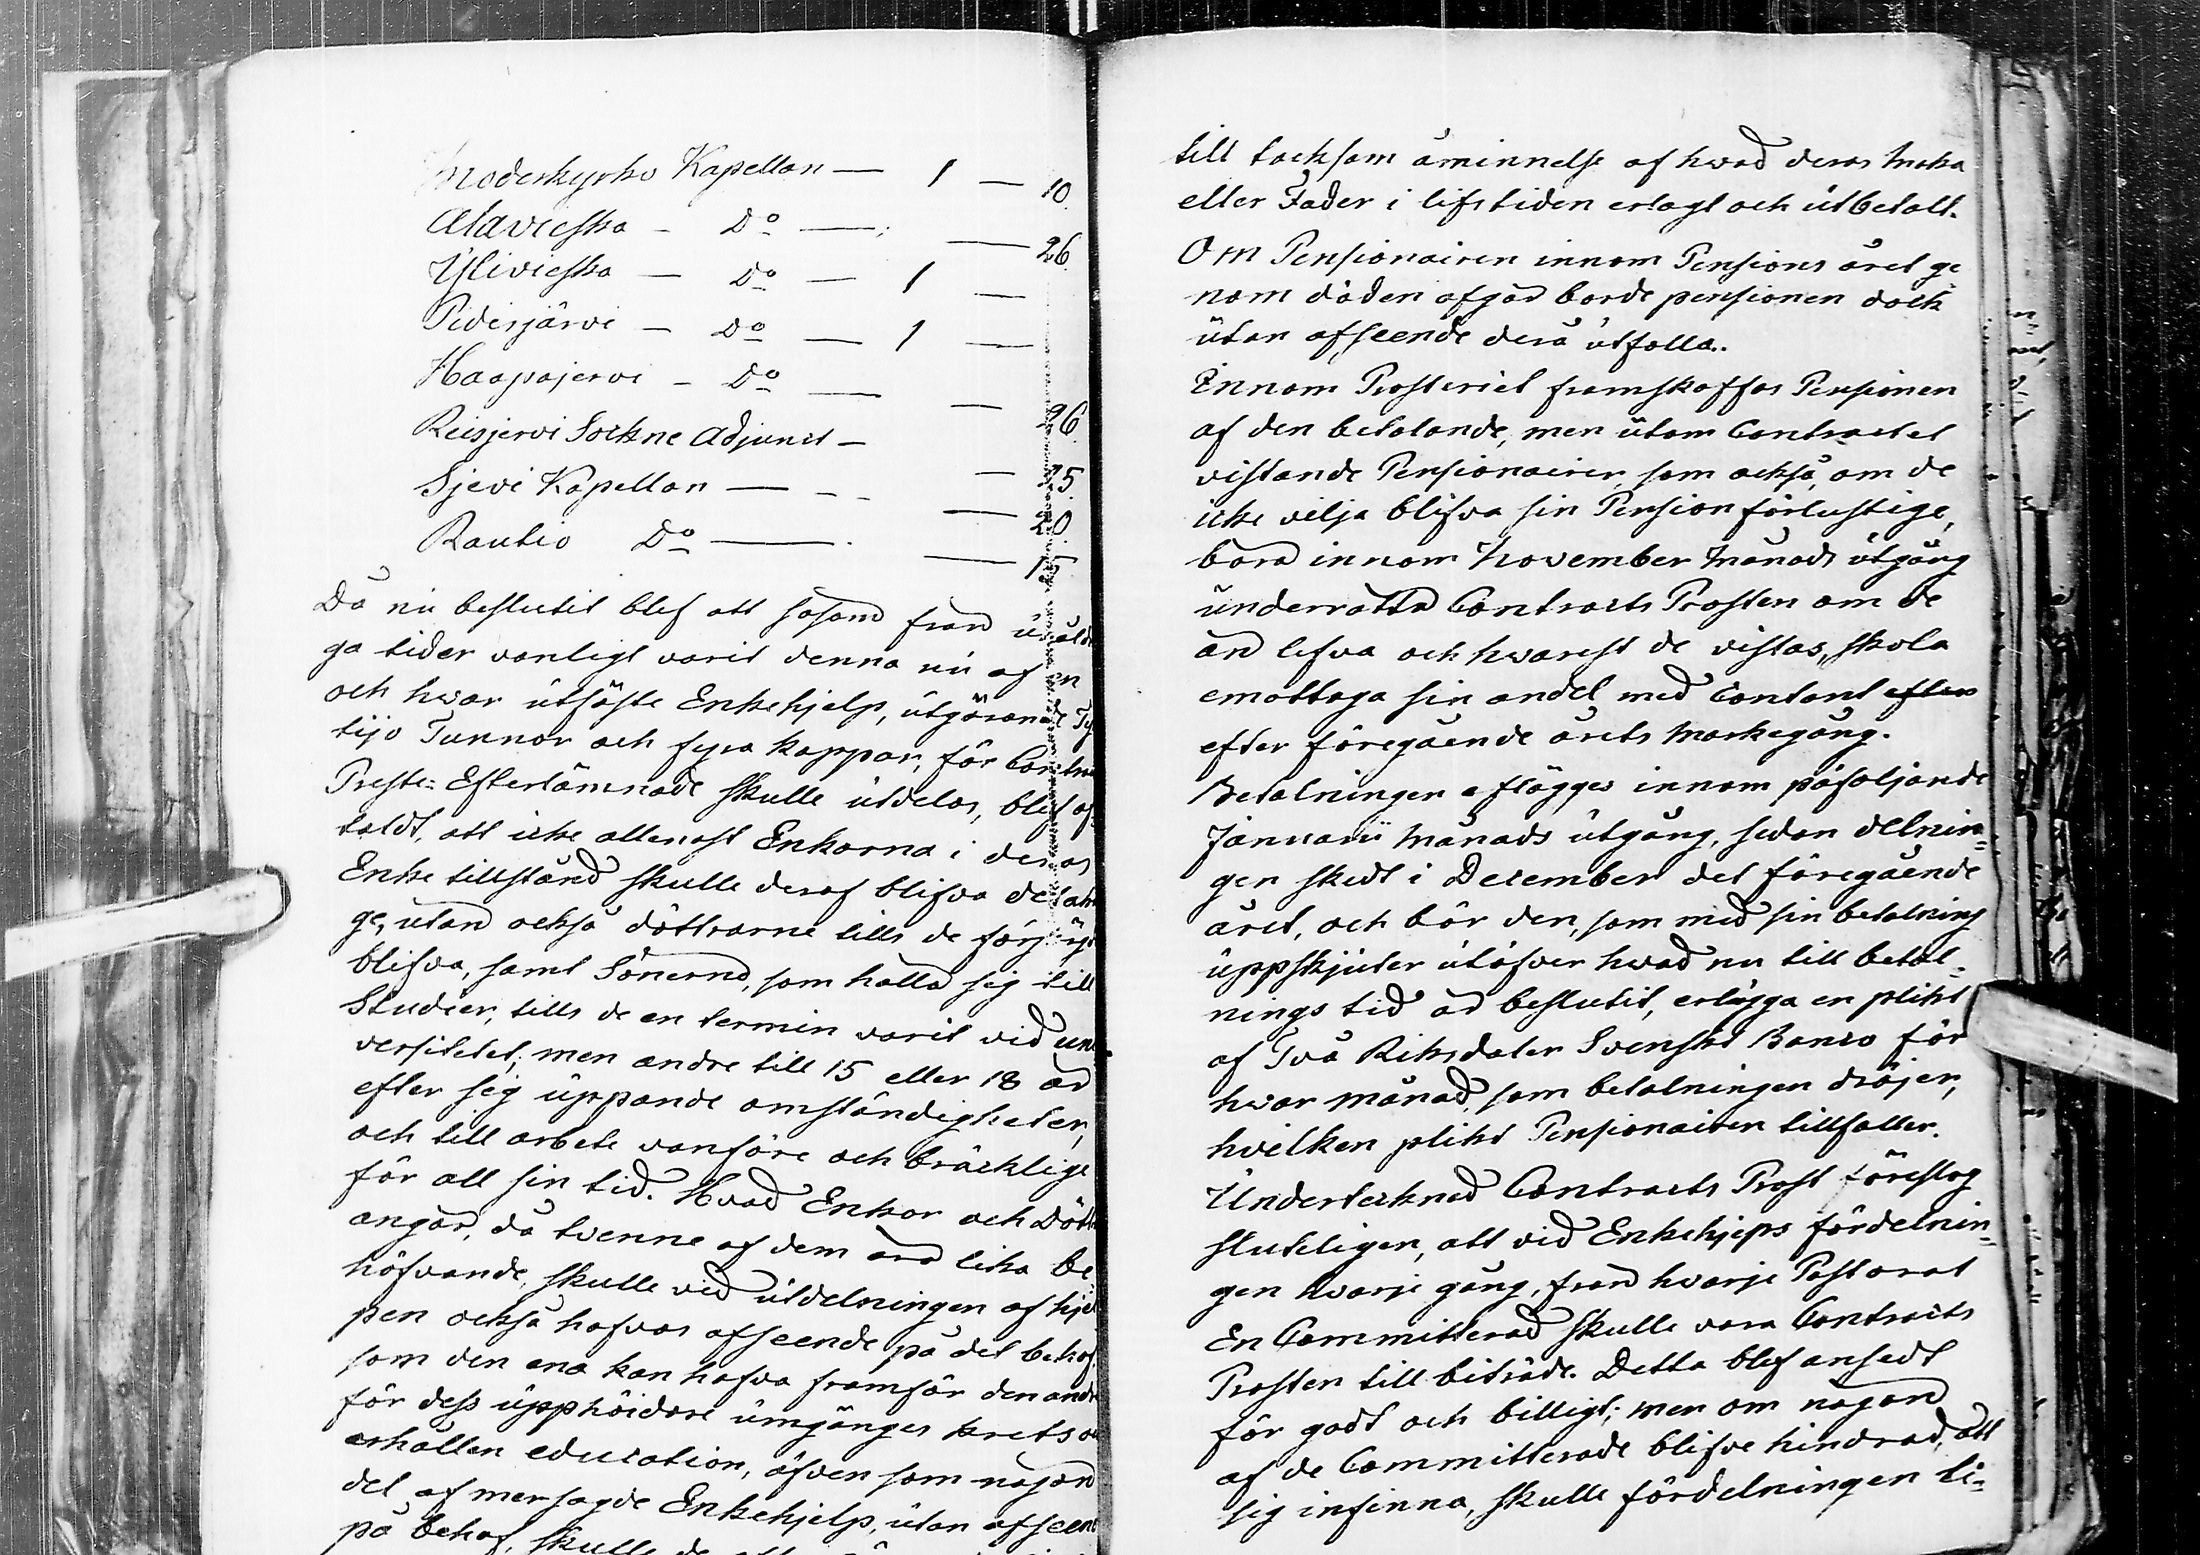 Moderkyrko Kapellan — 1 — 10.
Alavieska — Do — — 26.
Ylivieska — Do — 1 —
Pidisjärvi — Do — 1 —
Haapajervi — Do — — 26.
Reisjervi Sockne Adjunct — — 25.
Sjevi Kapellan — — 20.
Rautio Do — — 15.
Då nu beslutit blef att såsom från uråldri
ga tider vanligt varit denna nu af en
och hvar utfäste Enkehjelp, utgörande Tj
tijo Tunnor och fyra kappar, för Contr
Preste-Efterlämnade skulle utdelas, blef af
taldt, att icke allenast Enkorna i deras
Enke tillstånd skulle deraf blifva delakti
ge, utan också döttrarne tills de försörgd
blifva, samt Sönerne, som hålla sig till
Studier, tills de en termin varit vid uni
versitetet; men andre till 15 eller 18 år
efter sig yppande omständigheter,
och till arbete vanföre och bräcklige
för all sin tid. Hvad Enkor och Dött
angår, då tvenne af dem äro lika be
höfvande, skulle vid utdelningen af hjel
pen också hafvas afseende på det behof,
som den ena kan hafva framför den andr
för dess upphöidare umgänges krets o
erhållen education, äfven som någon
del af mersagde Enkehjelp, utan afseend
på behof, skulle de
till tacksam åminnelse af hvad deras Maka
eller Fader i lifstiden erlagt och utbetalt.
Om Pensionairen innom Pensions året ge
nom döden afgår borde pensionen dock
utan afseende derå utfalla.
Innom Prosteriet framskaffas Pensionen
af den betalande, men utom Contractet
vistande Pensionairer, som också, om de
icke vilja blifva sin Pension förlustige,
böra innom November Månads utgång
underrätta Contracts Prosten om de
än lefva och hvarest de vistas, skola
emottaga sin andel med Contant efter
efter föregående årets Markegång.
Betalningen aflägges innom påföljande
Januarii Månads utgång, sedan delnin-
gen skedt i December det föregående
året, och bör den, som med sin betalning
uppskjuter utöfver hvad nu till betal-
nings tid är beslutit, erlägga en plikt
af Två Riksdaler Svenskt Banco för
hvar månad, som betalningen dröjer,
hvilken plikt Pensionairen tillfaller.
Undertecknad Contracts Prost föreslog
sluteligen, att vid Enkehjeps fördelnin-
gen hvarje gång, från hvarje Pastorat
En Committerad skulle vara Contracts
Prosten till biträde. Detta blef ansedt
för godt och billigt; men om någon
af de Committerade blifve hindrad, att
sig infinna, skulle fördelningen li-